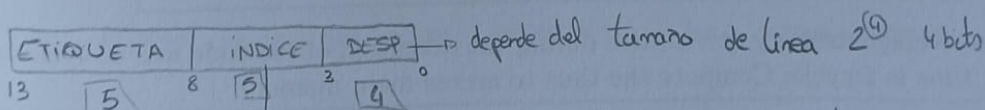 ETIQUETA | INDICE | DESP → depende del tamaño de linea 2④ 4 bits
13 5 8 5 3 4 0